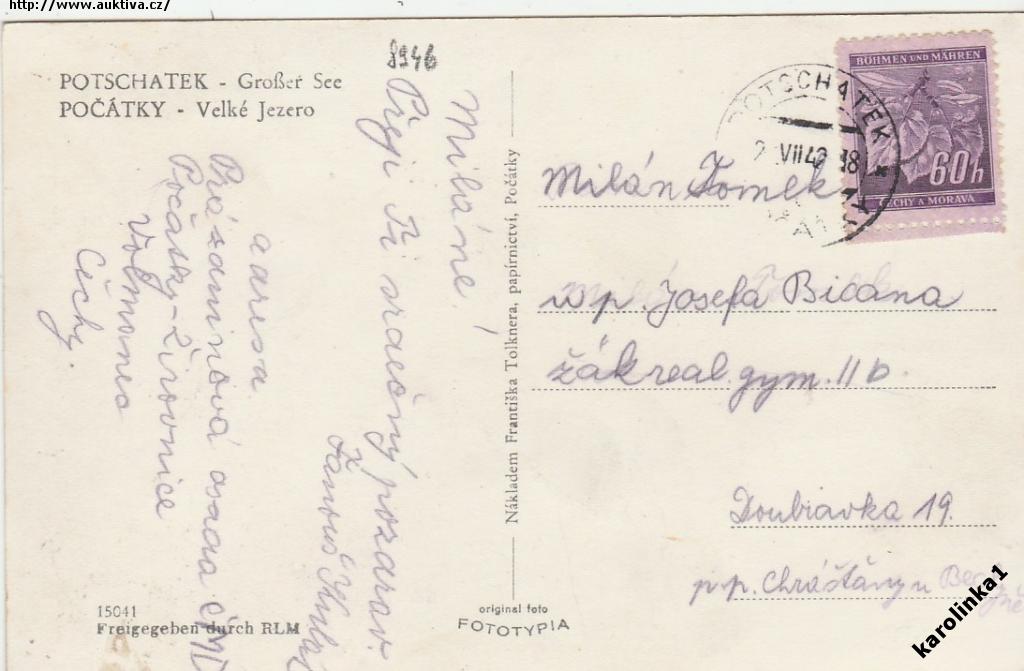 http://www.auktiva.cz/
8946
POTSCHATEK - Großer See
POČÁTKY - Velké Jezero
Miláne!
Přeji Ti srdečný pozdrav.
adresa
Prázdninová osada
Počátky-Žirovnice
Čechy.
15041
Freigegeben durch RLM
Nákladem Františka Tolknera, papírnictví, Počátky
original foto
FOTOTYPIA
BÖHMEN UND MÄHREN
60h
ČECHY A MORAVA
POTSCHATEK
VII 42 18
Milán Tomek
u p. Josefa Bicána
žák real. gym. II b.
Doubravka 19.
p. p. Chrášťany u
karolinka1